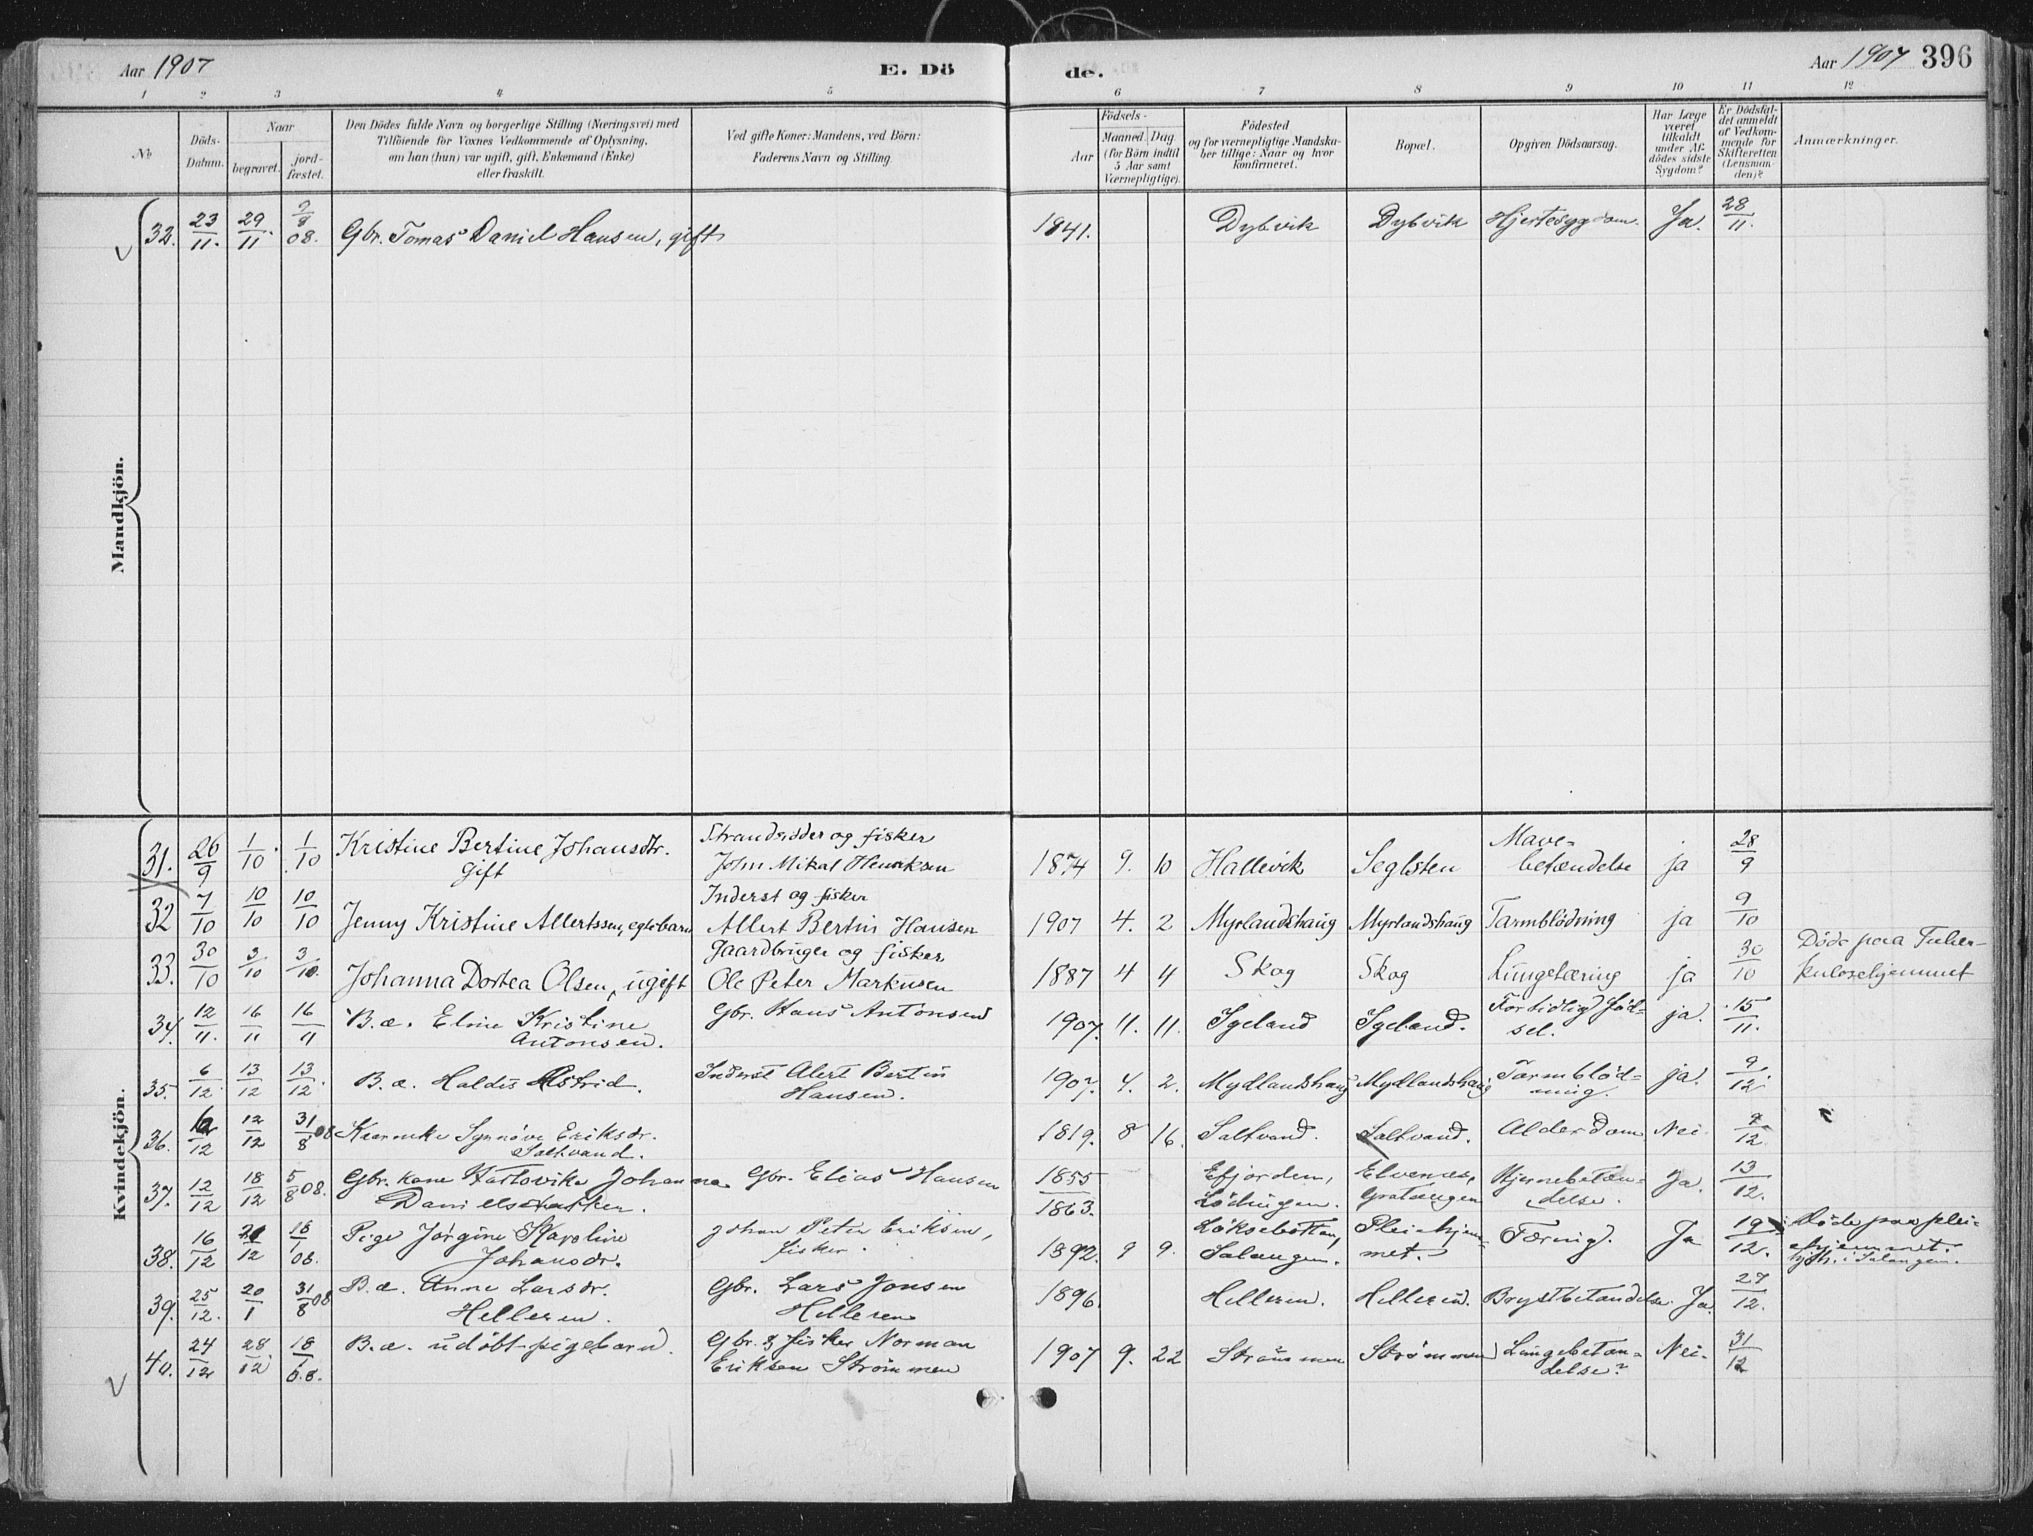 Aar 1907
E. Dö
de.
Aar 1907 396
1 2 3 4 5 6 7 8 9 10 11 12
No
Döds-
Datum.
Naar
begravet.
jord-
fæstet.
Den Dödes fulde Navn og borgerlige Stilling (Næringsvei) med
Tilföiende for Voxnes Vedkommende af Oplysning,
om han (hun) var ugift, gift, Enkemand (Enke)
eller fraskilt.
Ved gifte Koner: Mandens, ved Börn:
Faderens Navn og Stilling.
Födsels-
Aar
Maaned.
Dag
(for Börn indtil
5 Aar samt
Værnepligtige).
Födested
og for værnepligtige Mandska-
ber tillige: Naar og hvor
konfirmeret.
Bopæl.
Opgiven Dödsaarsag.
Har Læge
været
tilkaldt
under Af-
dödes sidste
Sygdom?
Er Dödsfal-
det anmeldt
af Vedkom-
mende for
Skifteretten
(Lensman-
den)?
Anmærkninger.
Mandkjön.
32. 23/11. 29/11. Gbr. Tomas Daniel Hansen, gift 1841. Dybvik Dybvik Hjertesygdom. Ja. 28/11.
Kvindekjön.
31. 26/9 1/10. 1/10 Kristine Bertine Johansdtr. Strandsidder og fisker
gift John Mikal Henriksen 1874 9. 10 Hallevik Seglsten Mave-
betændelse ja 28/9
32 7/10 10/10 10/10 Jenny Kristine Allertssen, egtebarn Inderst og fisker
Allert Bertin Hansen 1907 4. 2 Myrlandshaug Myrlandshaug Tarmblödning ja 9/10
33. 30/10 3/10 3/10. Johanna Dortea Olsen, ugift Gaardbruger og fisker
Ole Peter Markusen 1887 4 4 Skog Skog Lungetæring ja 30/10 Döde paa Tuber-
kulosehjemmet
34. 12/11. 16/11 16/11 B.æ. Eline Kristine Gbr. Hans Antonsen
Antonsen. 1907. 11. 11. Igeland Igeland. For tidlig föd-
sel. ja. 15/11.
35. 6/12. 13/12 13/12. B.æ. Haldis Astrid. Inderst Alert Bertin
Hansen. 1907. 4. 2. Mydlandshaug Mydlandshaug Tarmblöd-
ning. ja. 9/12.
36. 12/12 31/8 08 Synnöve Eriksdr.
Saltvand. 1819. 8 16. Saltvand. Saltvand. Alderdom Nei. /12.
37. 12/12 18/12 5/8 08. Gbr. kone Hartovika Johanna Gbr. Elias Hansen
1855
1863. Efjorden,
Lödingen. Elvenes,
Gratangen Hjernebetæn-
delse. Ja. 13/12.
38. 16/12 Pige Jörgine Karoline Johan Peter Eriksen,
Johansdr. fisker. 1892. 9 9. Löksebotten,
Salangen. Pleiehjem-
met. Tæring. Ja 19/12. Döde paa plei-
ehjemmet.
i Salangen.
39. 25/12. 20/1 31/8 08 B.æ. Anne Larsdr. Gbr. Lars Jonsen
Helleren. Helleren 1896. Helleren. Helleren. Brystbetændelse. Ja. 27/12.
40. 24/12 28/12. 18/1 08. B.æ. udöbt pigebarn. Gbr. & fisker Norman
Eriksen Strömmen 1907 9. 22 Strömmen Strömmen Lungebetæn-
delse? Nei. 31/12